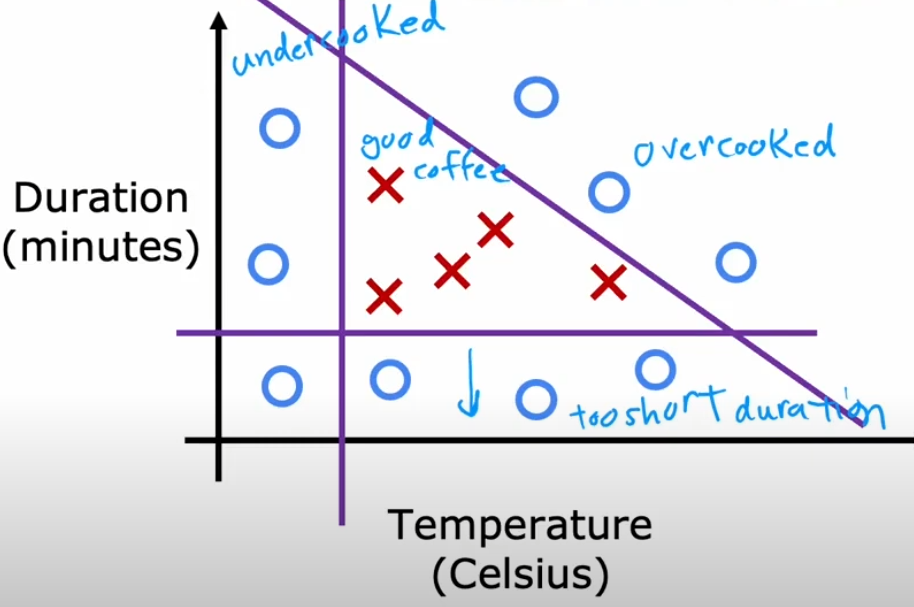 undercooked
good
coffee
overcooked
Duration
(minutes)
too short duration
Temperature
(Celsius)